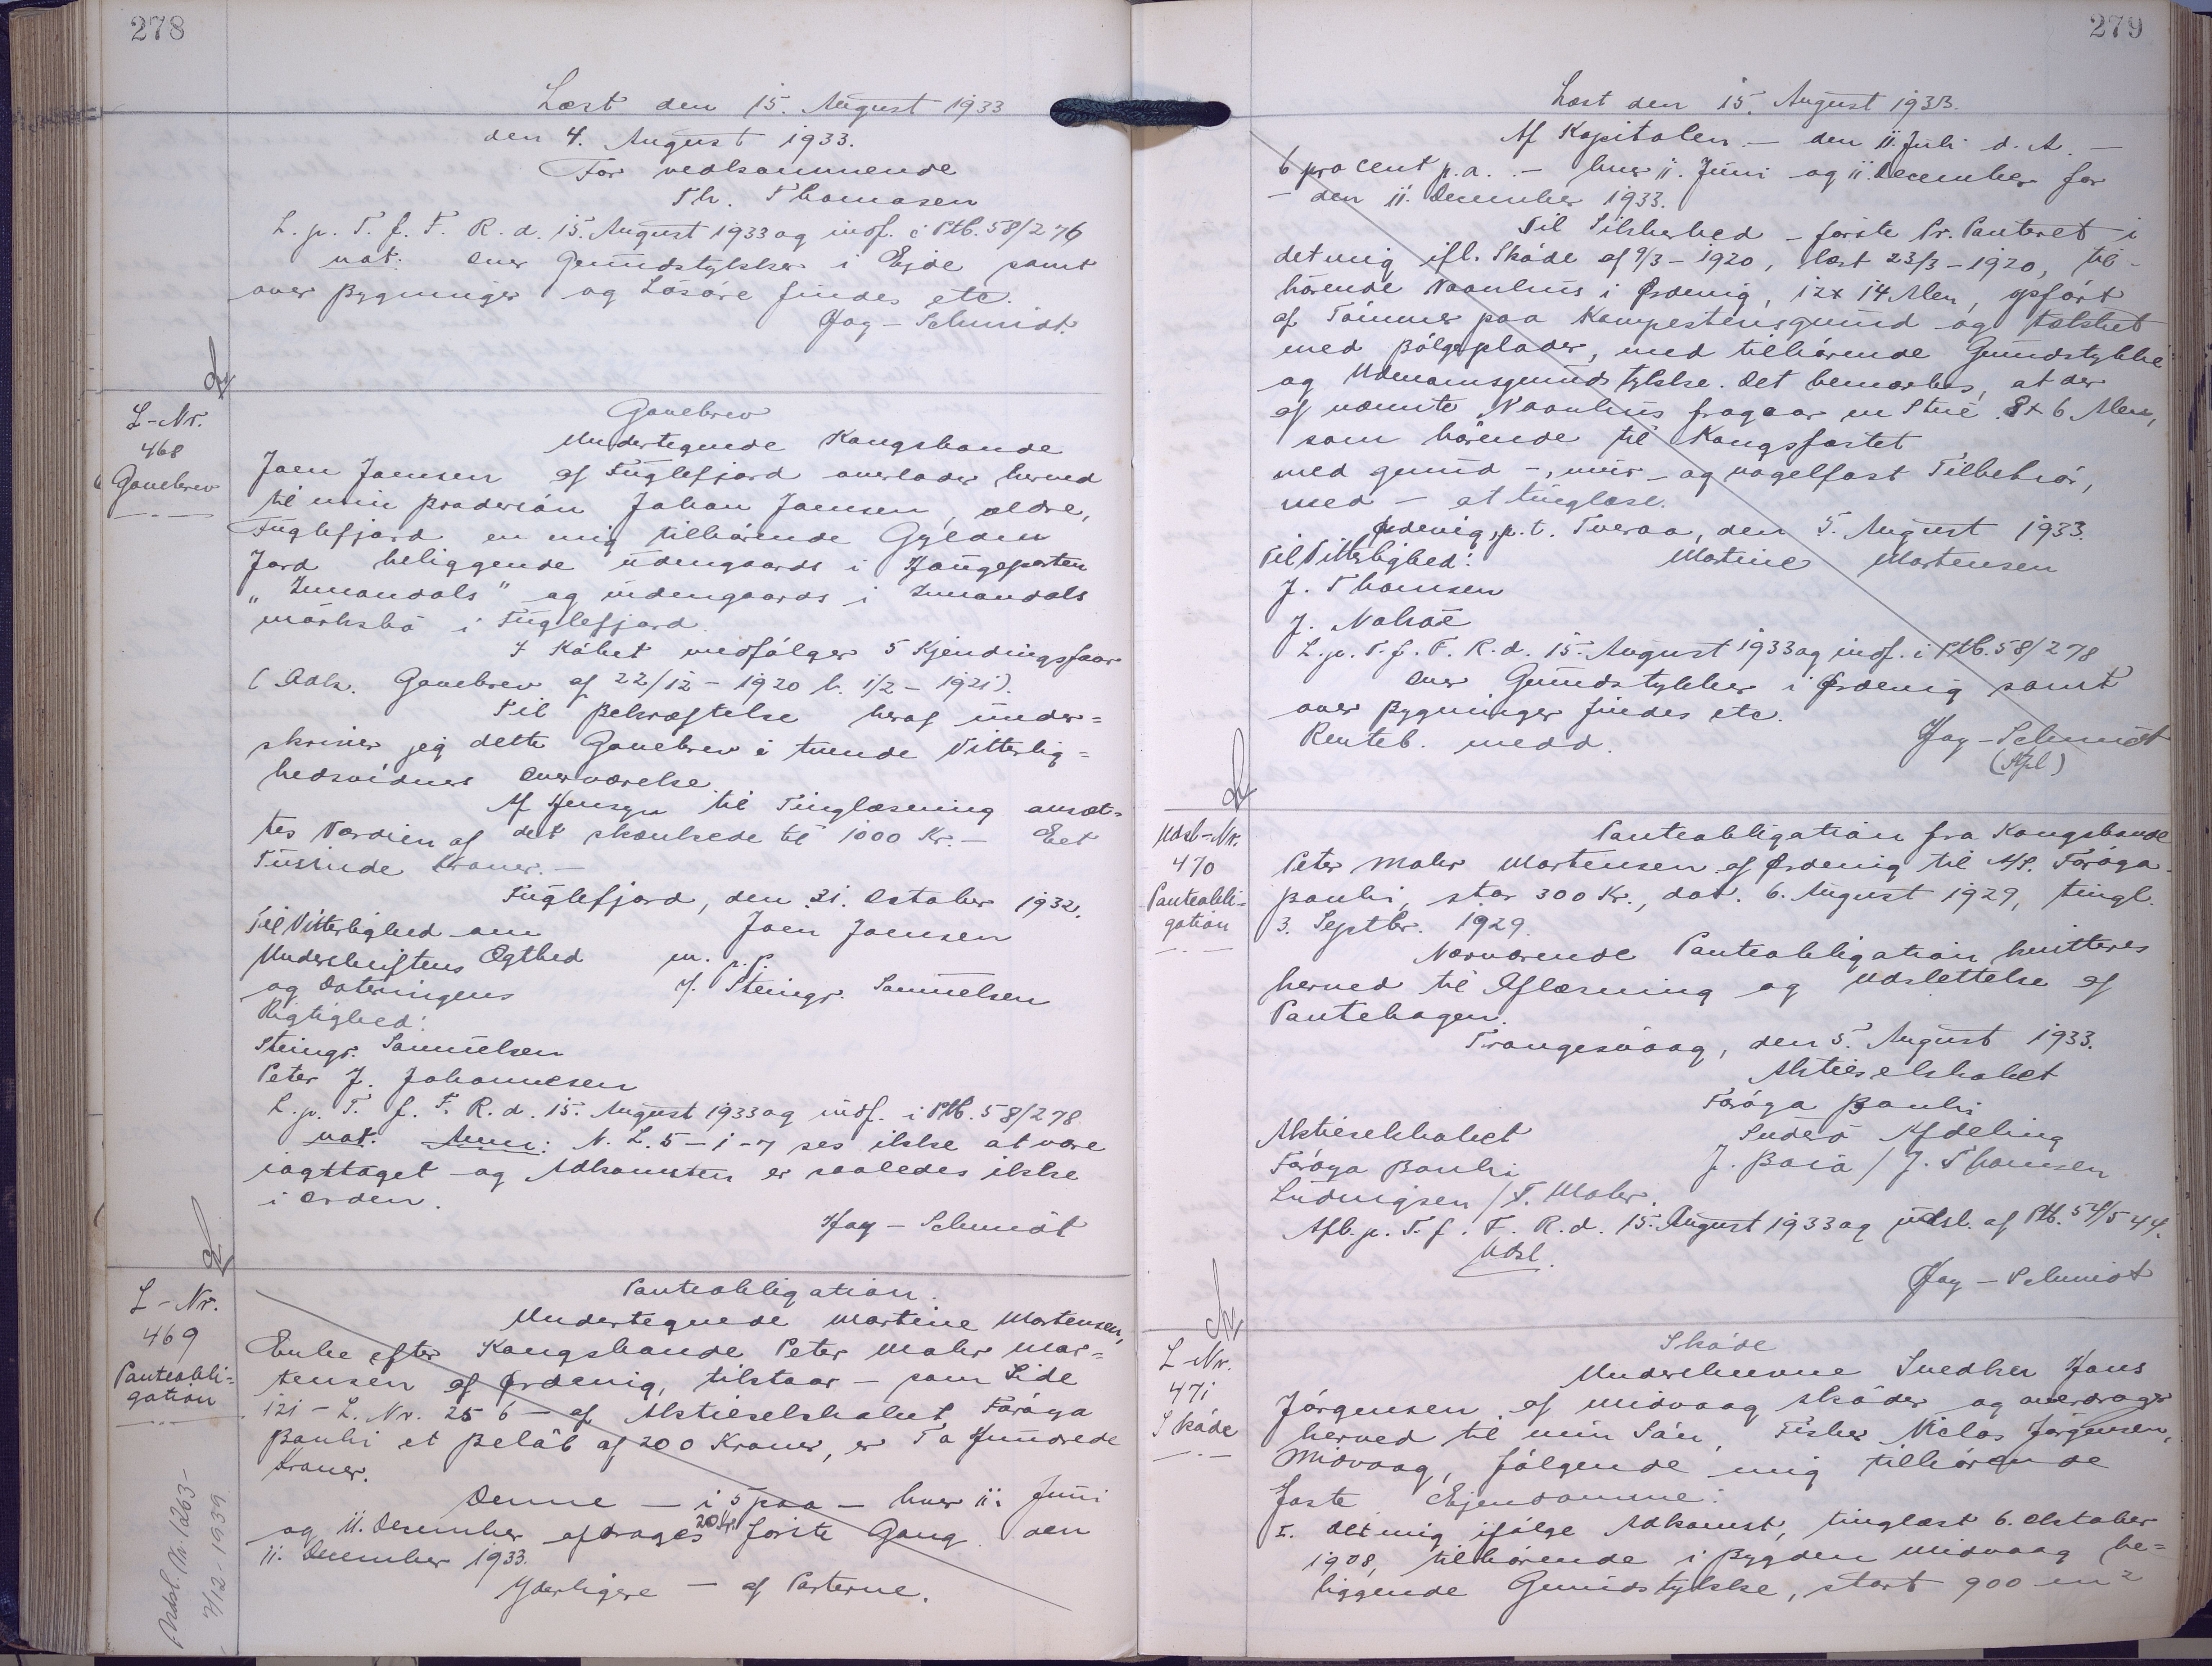 278
Læst den 15. August 1933
den 4. August 1933.
For vedkommende
Th. Thomasen
L. p. T. f. F. R. d. 15. August 1933 og indf. i Ptb. 58/276
not: Over Grundstykker i Ejde samt
over Bygninger og Løsøre findes etc.
Hay-Schmidt.
L-Nr.
468
Gavebrev
Gavebrev
Undertegnede Kongsbonde
Joen Joensen af Fuglefjord overlader herved
til min Brodersøn Johan Joensen, ældre,
Fuglefjord en mig tilhørende Gylden
Jord beliggende udengaards i Haugeparten
"Innandals" og indengaards i Innandals
mørksbø i Fuglefjord.
I Købet medfølger 5 Kjendingsfaar
(Adk. Gavebrev af 22/12-1920 l. 1/2-1921).
Til Bekræftelse heraf under=
skriver jeg dette Gavebrev i tvende Vitterlig=
hedsvidners Overværelse.
Af Hensyn til Tinglæsning ansæt=
tes Værdien af det skænkede til 1000 Kr. - Eet
Tusinde Kroner. -
Fuglefjord, den 21. Oktober 1932.
Til Vitterlighed om
Joen Joensen
Underskriftens Ægthed
m. p. P.
og Dateringens
J. Steingr. Samuelsen
Rigtighed:
Steingr. Samuelsen
Peter J. Johannesen
L. p. T. f. F. R. d. 15. August 1933 og indf. i Ptb. 58/278
not. Anm: N. L. 5-1-7 ses ikke at være
iagttaget og Adkomsten er saaledes ikke
i Orden.
Hay-Schmidt
L-Nr.
469
Panteobli=
gation
Udsl. Nr. 1263-
7/12-1939
Panteobligation.
Undertegnede Martine Mortensen,
Enke efter Kongsbonde Peter Mohr Mor=
tensen af Ørdevig, tilstaar - som Side
121 - L. Nr. 256 - af Aktieselskabet Førøya
Banki et Beløb af 200 Kroner, er To Hundrede
Kroner.
Denne - i 5 paa - hver 11. Juni
og 11. December afdrages 20 Kr. første Gang den
11. December 1933.
Yderligere - af Parterne.
279
Læst den 15. August 1933.
Af Kapitalen. - den 11. Juli d. A. -
6 procent p. a. - hver 11. Juni og 11. December før
- den 11. December 1933.
Til Sikkerhed - første Pr. Panteret i
det mig ifl. Skøde af 9/3-1920, læst 23/3-1920, til-
hørende Vaanhus i Ørdevig, 12 x 14 Alen, opført
af Tømmer paa Kampestensgrund og tækket
med Bølgeplader, med tilhørende Grundstykke
og Udmarksgrundstykke. Det bemærkes, at der
af nævnte Vaanhus fragaar en Stue 8 x 6 Alen,
som hørende til Kongsfæstet
med grund -, mur - og nagelfast Tilbehør,
med - at tinglæse.
Ørdevig, p. t. Tveraa, den 5. August 1933.
Til Vitterlighed:
Martine Mortensen
J. Thomsen
J. Nolsøe
L. p. T. f. F. R. d. 15. August 1933 og indf. i Ptb. 58/278
Over Grundstykker i Ørdevig samt
over Bygninger findes etc.
Renteb. medd.
Hay-Schmidt
Udsl-Nr.
470
Panteobli-
gation
Panteobligation fra Kongsbonde
Peter Mohr Mortensen af Ørdevig til A/S. Førøya
Banki, stor 300 Kr., dat. 6. August 1929, tingl.
3. Septbr. 1929.
Nærværende Panteobligation kvitteres
herved til Aflæsning og Udslettelse af
Pantebogen.
Trangesvaag, den 5. August 1933.
Aktieselskabet
Førøya Banki
Aktieselskabet
Suderø Afdeling
Førøya Banki
J. Baia / J. Thomsen
Ludvigsen / T. Mohr.
Afl. p. T. f. F. R. d. 15. August 1933 og udsl. af Ptb. 54/544.
Udsl.
Hay-Schmidt
L-Nr.
471
Skøde
Skøde
Underskrevne Snedker Hans
Jørgensen af Midvaag skøder og overdrager
herved til min Søn, Fisker Niclas Jørgensen,
Midvaag, følgende mig tilhørende
faste Ejendomme:
I. Det mig ifølge Adkomst, tinglæst 6. Oktober
1908, tilhørende i Bygden Midvaag be=
liggende Grundstykke, stort 900 m²